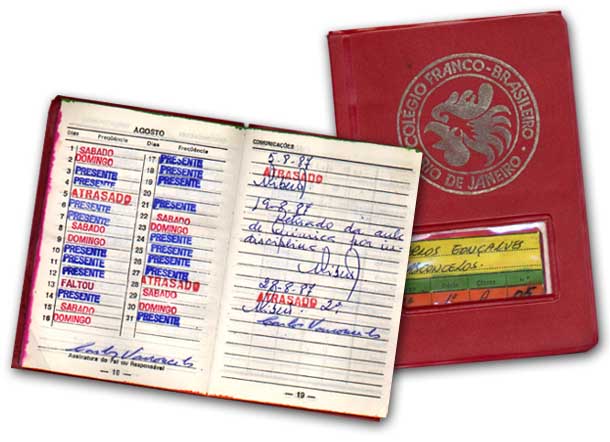 COLÉGIO FRANCO-BRASILEIRO
RIO DE JANEIRO
GONÇALVES
Série Classe N.º
1º 05
AGOSTO
Dias Freqüência Dias Freqüência
1 SABADO 17 PRESENTE
2 DOMINGO 18 PRESENTE
3 PRESENTE 19 PRESENTE
4 PRESENTE 20 PRESENTE
5 ATRASADO 21 PRESENTE
6 PRESENTE 22 SABADO
7 PRESENTE 23 DOMINGO
8 SABADO 24 PRESENTE
9 DOMINGO 25 PRESENTE
10 PRESENTE 26 PRESENTE
11 PRESENTE 27 PRESENTE
12 PRESENTE 28 ATRASADO
13 FALTOU 29 SABADO
14 PRESENTE 30 DOMINGO
15 SABADO 31 PRESENTE
16 DOMINGO
Carlos Vasconcelos
Assinatura do Pai ou Responsável
— 18 —
COMUNICAÇÕES
5.8.87
ATRASADO
19-8-87
Retirado da aula
de Química por in-
disciplina
28-8-87
ATRASADO 2º
Carlos Vasconcelos
— 19 —